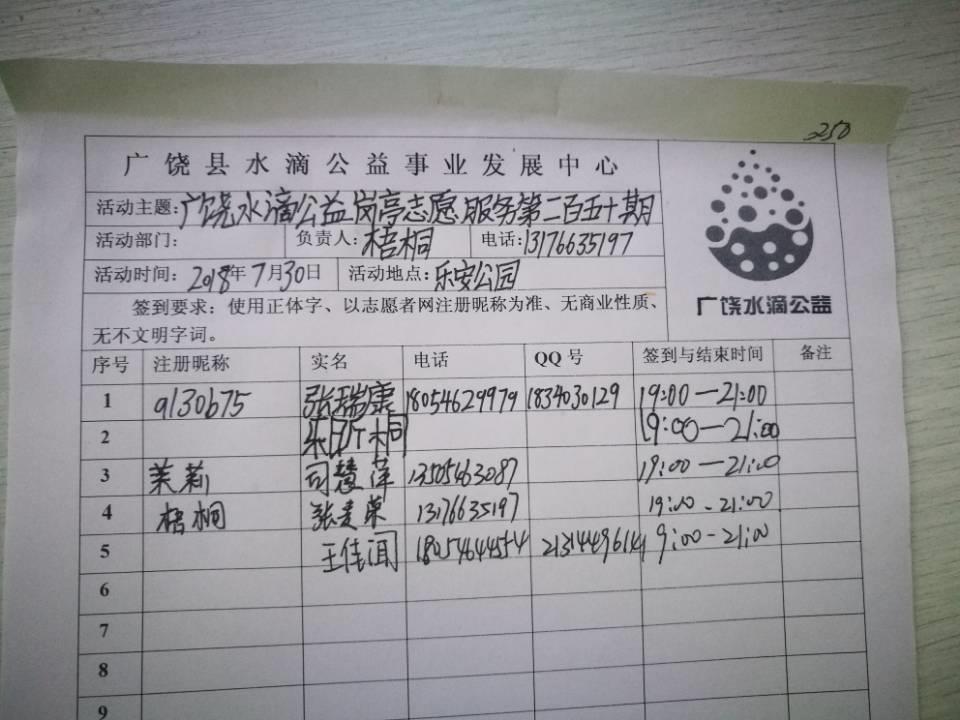 250
广饶县水滴公益事业发展中心
活动主题:广饶水滴公益岗亭志愿服务第二百五十期
活动部门: 负责人:梧桐 电话:13176635197
活动时间: 2018年7月30日 活动地点:乐安公园
签到要求:使用正体字、以志愿者网注册昵称为准、无商业性质、
无不文明字词。
广饶水滴公益
序号 注册昵称 实名 电话 QQ号 签到与结束时间 备注
1 9130675 张瑞康 18054629979 1834030129 19:00—21:00
2 19:00—21:00
3 茉莉 司慧萍 13505463087 19:00—21:00
4 梧桐 13176635197 19:00-21:00
5 王佳闻 18054644554 9:00-21:00
6
7
8
9